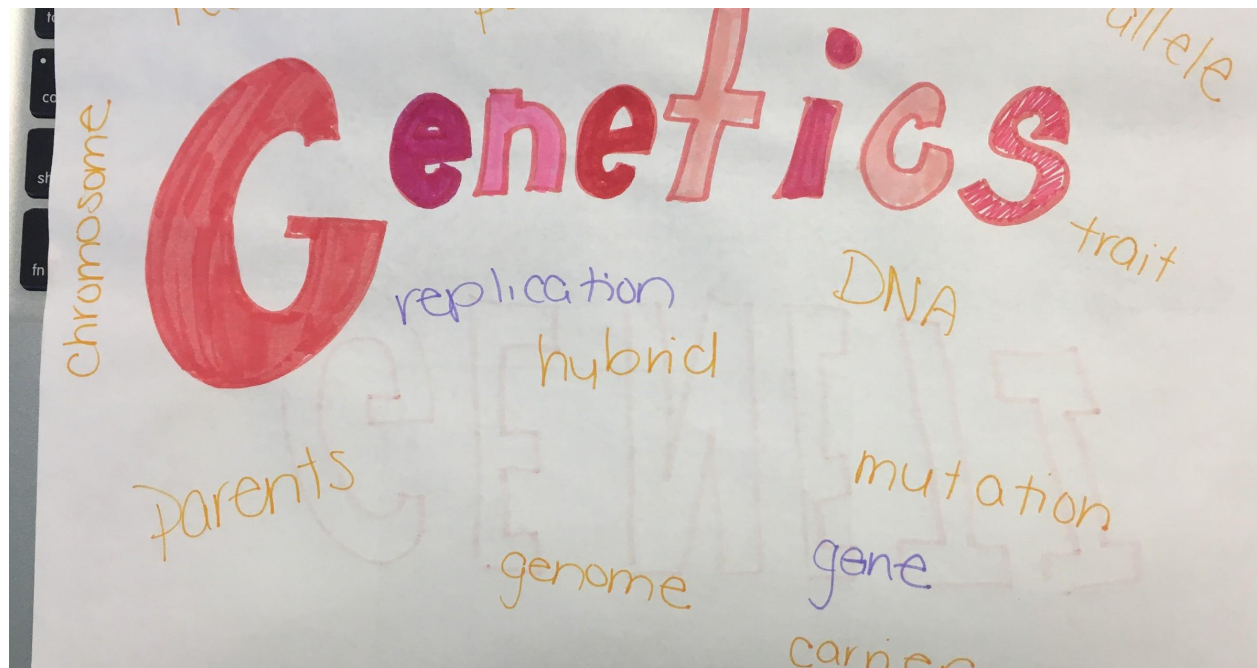 allele
Genetics
chromosome
trait
replication
DNA
hybrid
parents
mutation
genome
gene
fn